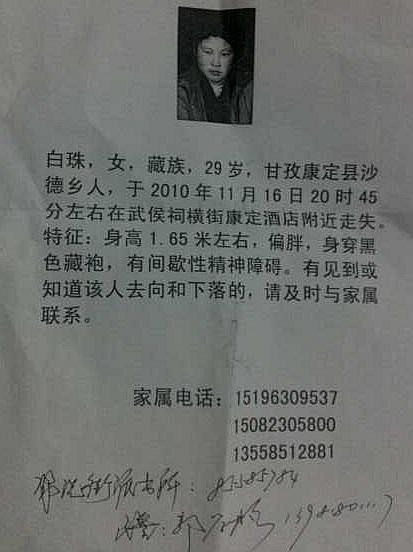 白珠，女，藏族，29岁，甘孜康定县沙
德乡人，于2010年11月16日20时45
分左右在武侯祠横街康定酒店附近走失。
特征：身高1.65米左右，偏胖，身穿黑
色藏袍，有间歇性精神障碍。有见到或
知道该人去向和下落的，请及时与家属
联系。
家属电话：15196309537
15082305800
13558512881
派出所：85585784